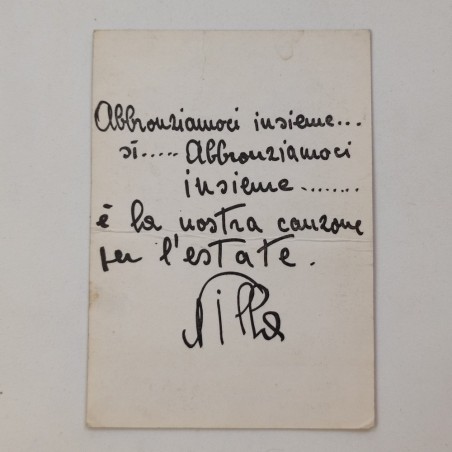 Abbronziamoci insieme...
si..... Abbronziamoci
insieme........
è la nostra canzone
per l'estate.
Nilla